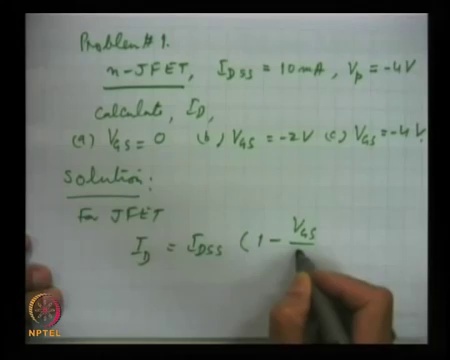 Problem # 1.
n-JFET, IDSS = 10mA, Vp = -4V
Calculate, ID,
(a) VGS = 0 (b) VGS = -2V (c) VGS = -4V.
Solution:
For JFET
ID = IDSS (1 - VGS
NPTEL